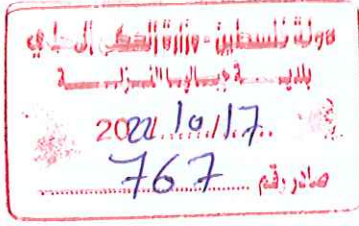 دولة فلسطين - وزارة الحكم المحلي
بلديـــة جبـاليـا النـزلـــة
2022/10/17
صادر رقم 767